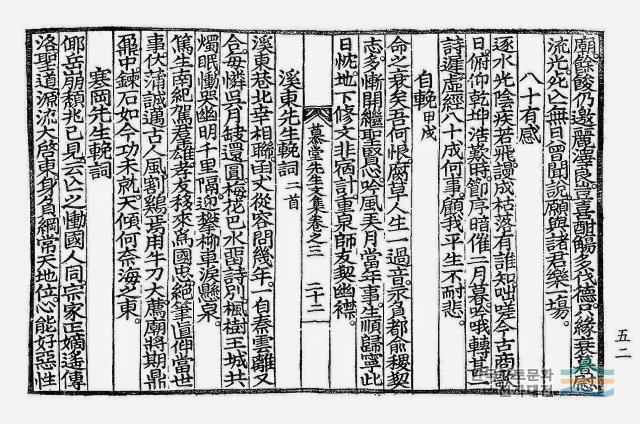 廟餘酸仍邀麗澤良肯喜酣觴多伐德只緣衰暮慰
流光死亡無日曾聞說願與諸君樂一場
八十有感
逐水光陰疾若飛謾成枯落有誰知咄嗟今古商歌
日俯仰乾坤浩歎時節序暗催二月暮吟哦轉甚二
詩遲虛經八十成何事顧我平生不耐悲
自輓 甲戌
命之衰矣吾何恨腐草人生一過音承負都俞稷契
志多慚開繼聖賢心吟風弄月當年事生順歸寧此
日忱地下修文非病計重泉師友契幽襟
慕堂先生文集卷之三 二十二
溪東先生輓詞 二首
溪東巷北幸相聯函丈從容問幾年一自秦雲離又
合每憐吳月缺還圓梅花巴水留詩別楓樹王城共
燭眠慟哭幽明千里隔迎攀柳車淚懸泉
篤生南紀駕羣雄孝友移來爲國忠絕筆直伸當世
事伏蒲誠邁古人風割鷄焉用牛刀大薦廟將期鼎
鼐中鍊石如今功未就天傾何奈海之東
寒岡先生輓詞
邱岳崩頹兆已見云亡之慟國人同宗家正嫡遙傳
洛聖道源流大啓東身負綱常天地位心能好惡性
五二